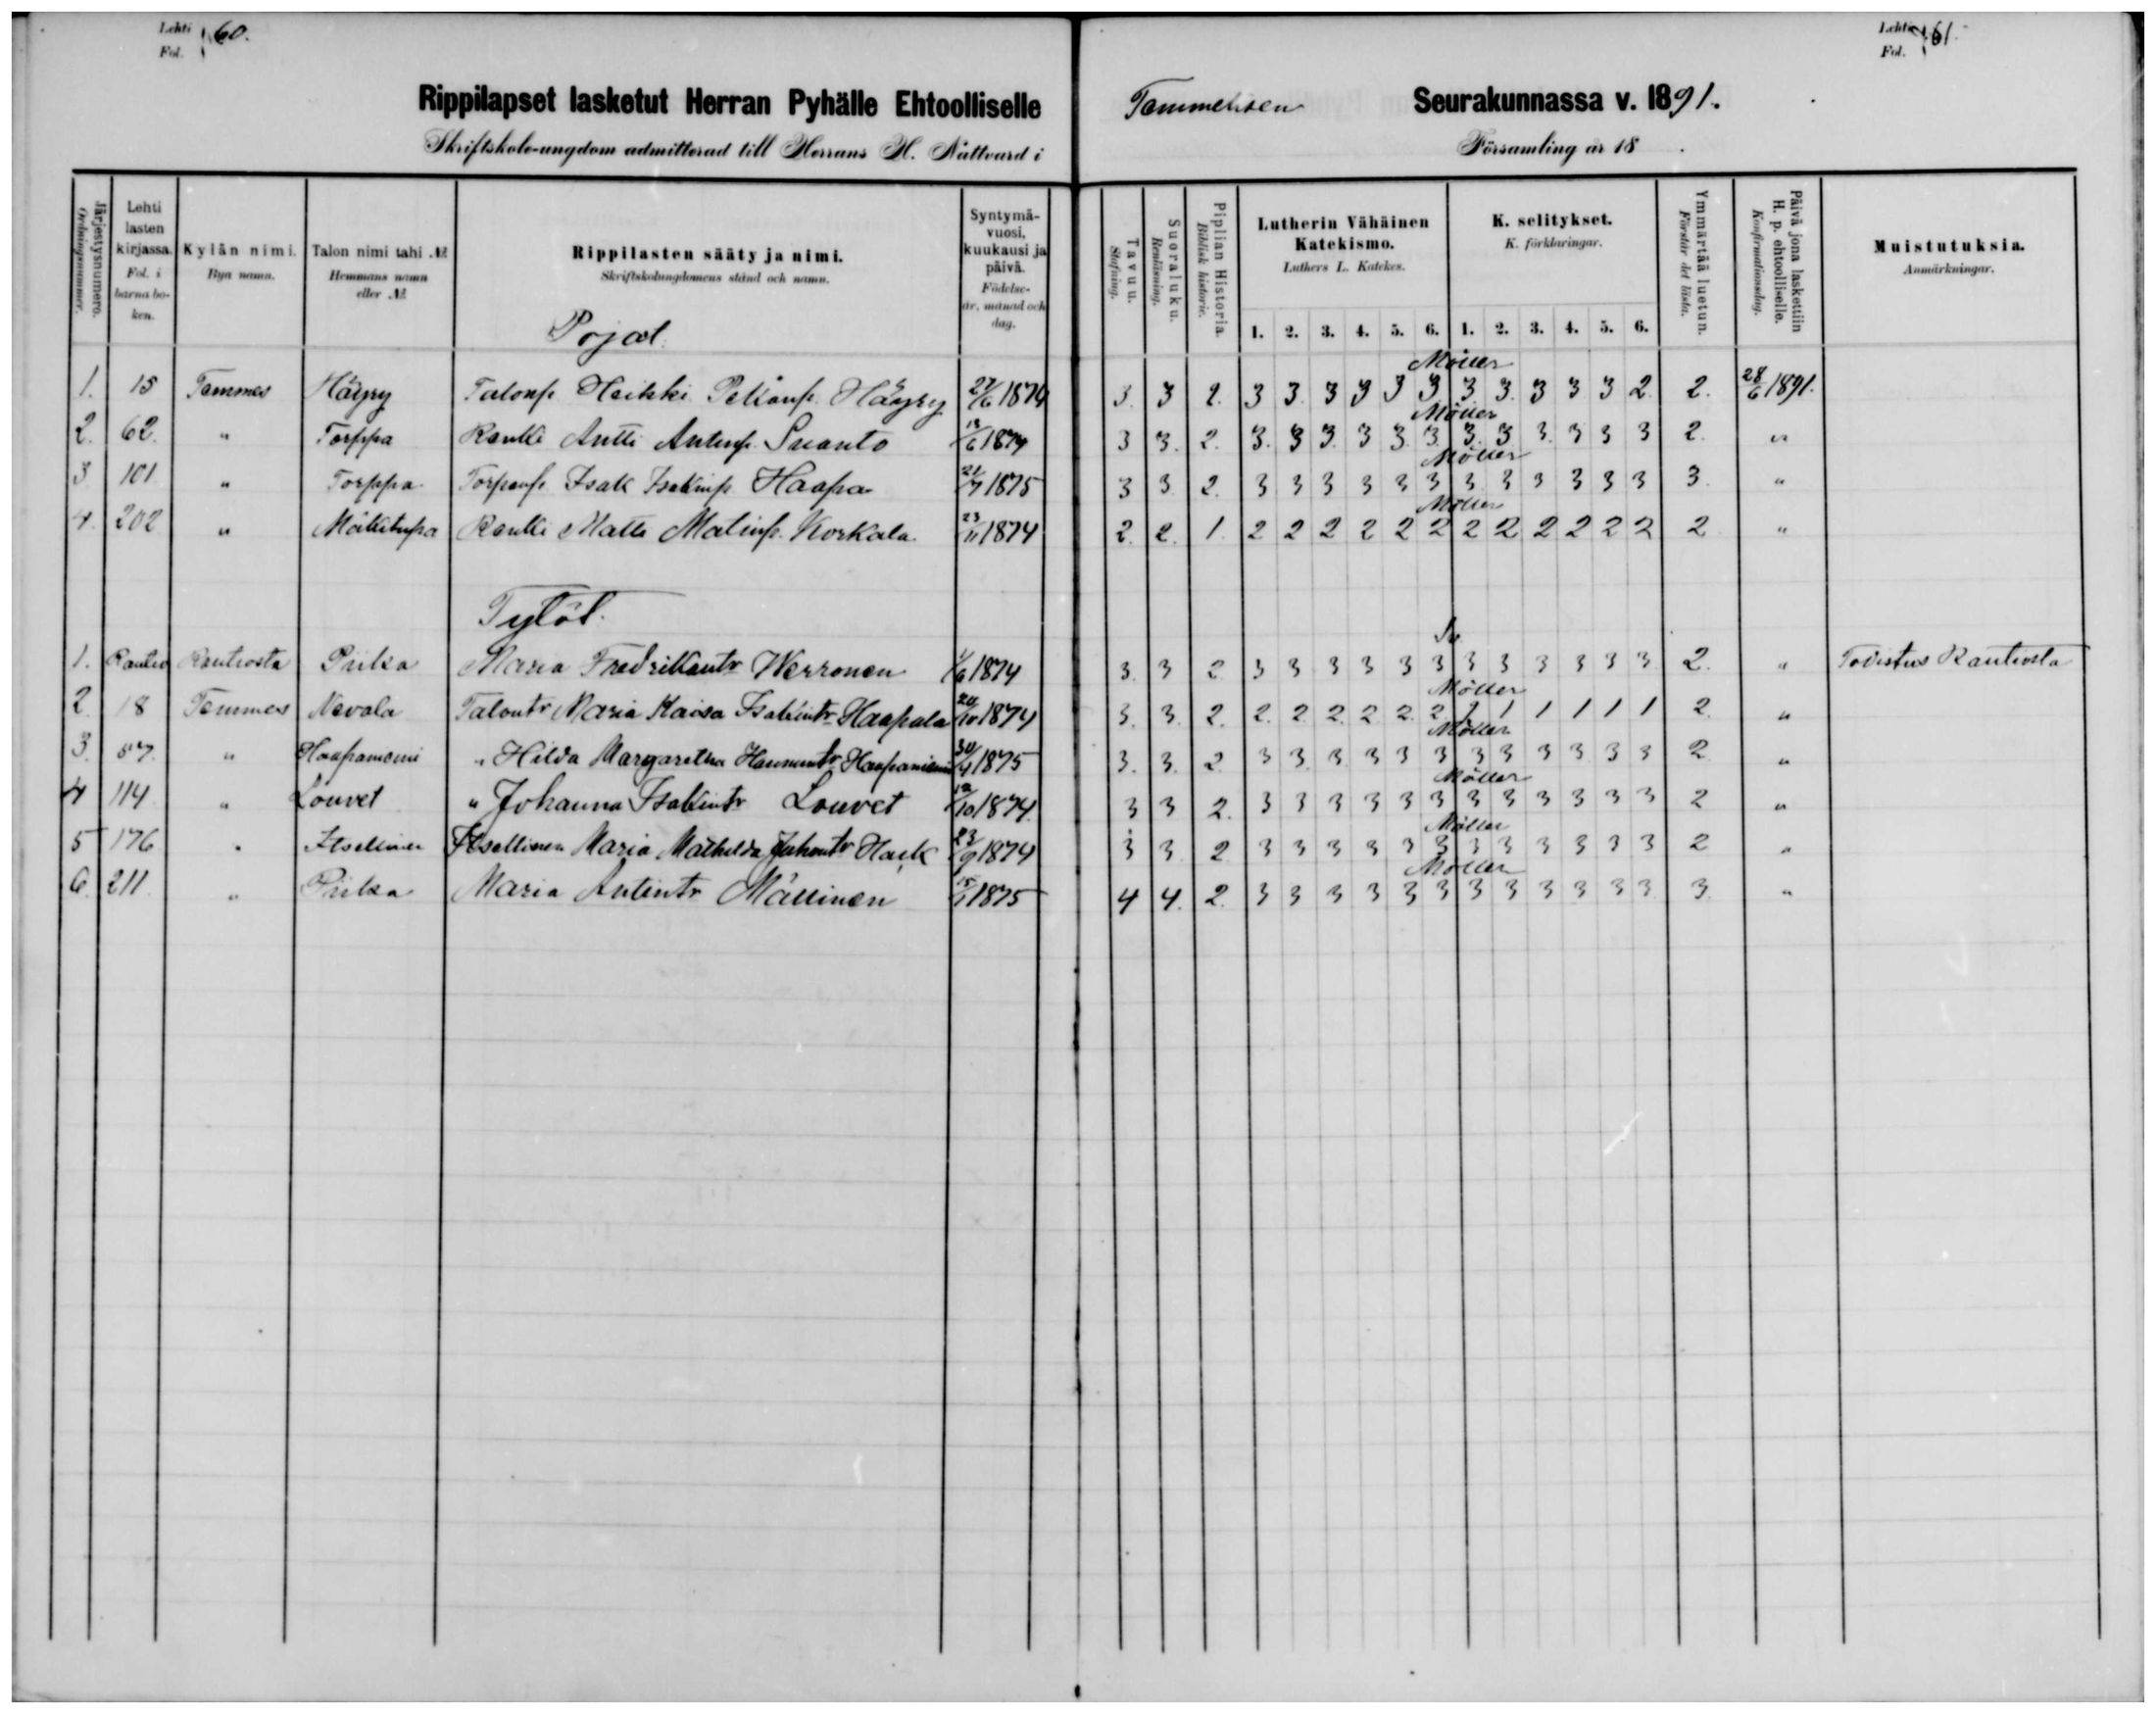 Lehti Fol. 60.
Lehti Fol. 61.
Rippilapset lasketut Herran Pyhälle Ehtoolliselle Temmeksen Seurakunnassa v. 1891.
Skriftskole-ungdom admitterad till Herrans H. Nattvard i Församling år 18 .
Järjestysnumero. Ordningsnummer.
Lehti lasten kirjassa. Fol. i barnaboken.
Kylän nimi. Bya namn.
Talon nimi tahi №. Hemmans namn eller №.
Rippilasten sääty ja nimi. Skriftskolungdomens stånd och namn.
Syntymävuosi, kuukausi ja päivä. Födelseår, månad och dag.
Tavuu. Stafning.
Suoraluku. Renläsning.
Piplian Historia. Biblisk historie.
Lutherin Vähäinen Katekismo. Luthers L. Katekes.
K. selitykset. K. förklaringar.
Ymmärtää luetun. Förstår det lästa.
Päivä jona laskettiin H. p. ehtoolliselle. Konfirmationsdag.
Muistutuksia. Anmärkningar.
1. 2. 3. 4. 5. 6. 1. 2. 3. 4. 5. 6.
Pojat.
Möller
1. 15 Temmes Häyry Talonp. Heikki Häyry 27/6 1874 3. 3 2. 3 3. 3 3 3 3 3. 3. 3 3 3 2. 2. 28/6 1891.
Möller
2. 62. " Torppa Renki Antti Antinp. Suanto 13/6 1874 3 3. 2. 3. 3 3. 3 3. 3. 3. 3 3. 3 3 3 2. "
Möller
3 101 " Torppa Torparip. Isak Isakinp. Haapa 21/7 1875 3 3 2. 3 3 3 3 3 3 3 3 3 3 3 3 3. "
Möller
4. 202 " Mäkitupa Renki Matti Matinp. Korkala 23/11 1874 2. 2. 1. 2 2 2 2 2 2 2 2 2 2 2 2 2 "
Tytöt.
1. Rantio Rantiosta Piika Maria Fredrikantr Werronen 1/6 1874 3. 3 2 3 3 3 3 3 3 3 3 3 3 3 3 2. " Todistus Rantiosta
Möller
2. 18 Temmes Nevala Talontr Maria Kaisa Isakintr Haapala 24/10 1874 3. 3. 2. 2. 2 2. 2 2. 2 1 1 1 1 1 1 2. "
Möller
3. 57. " Haapaniemi " Hilda Margaretha Hannuntr Haapaniemi 30/4 1875 3. 3. 2. 3 3 3 3 3 3 3 3 3 3 3 3 2 "
Möller
4 114 " Louvet " Johanna Isakintr Louvet 12/10 1874 3 3 2. 3 3 3 3 3 3 3 3 3 3 3 3 2 "
Möller
5 176 " Itsellinen Itsellinen Maria Mathilda Juhontr Hack 23/9 1874 3 3 2 3 3 3 3 3 3 3 3 3 3 3 3 2 "
Möller
6. 211 " Piika Maria Antintr Mällinen 15/1 1875 4 4. 2. 3 3 3 3 3 3 3 3 3 3 3 3 3. "